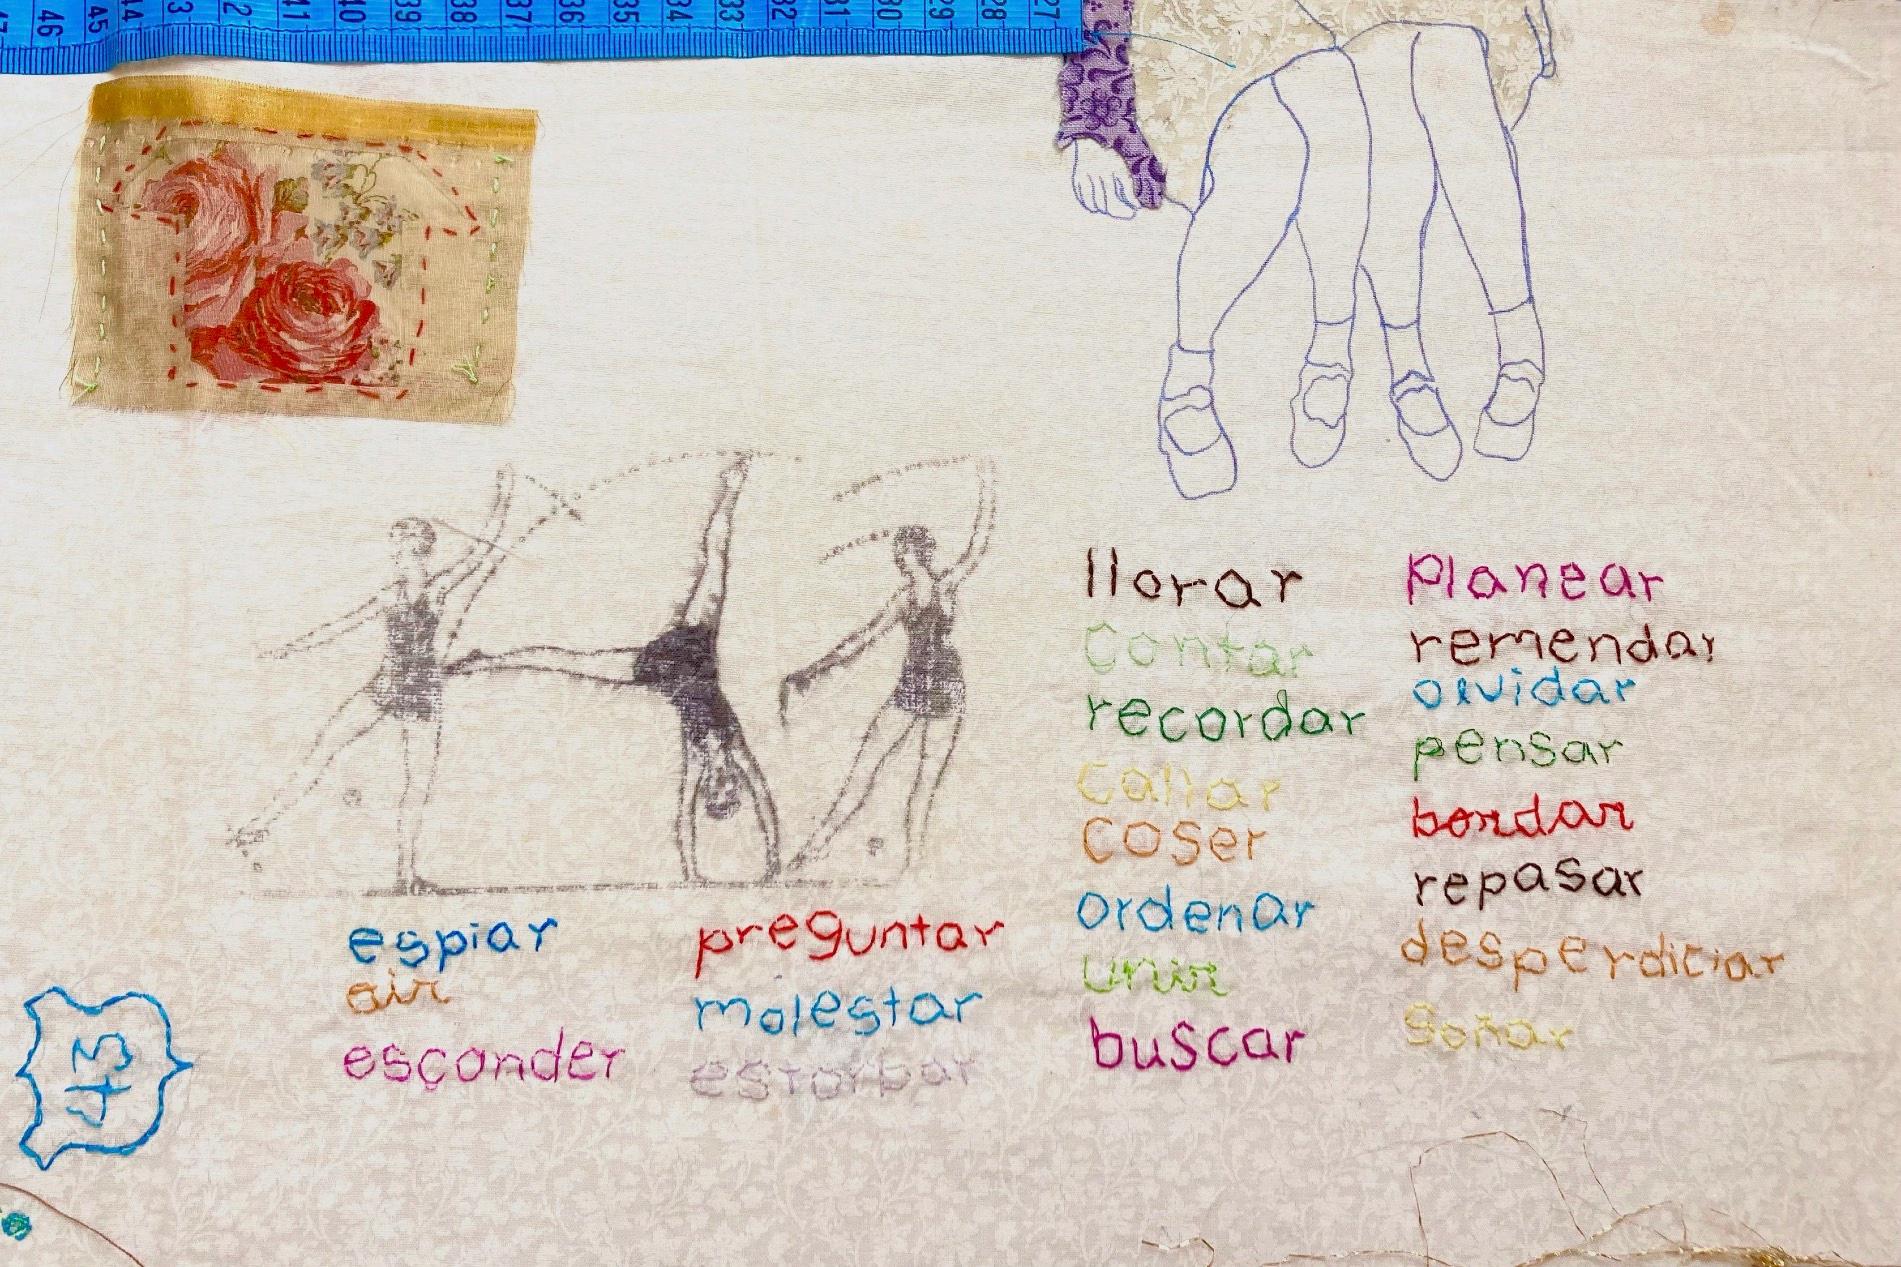 46 45 44 43 42 41 40 39 38 37 36 35 34 33 32 31 30 29 28 27
llorar
contar
recordar
callar
coser
ordenar
unir
buscar
planear
remendar
olvidar
pensar
bordar
repasar
desperdiciar
soñar
espiar
oir
esconder
preguntar
molestar
estorbar
43